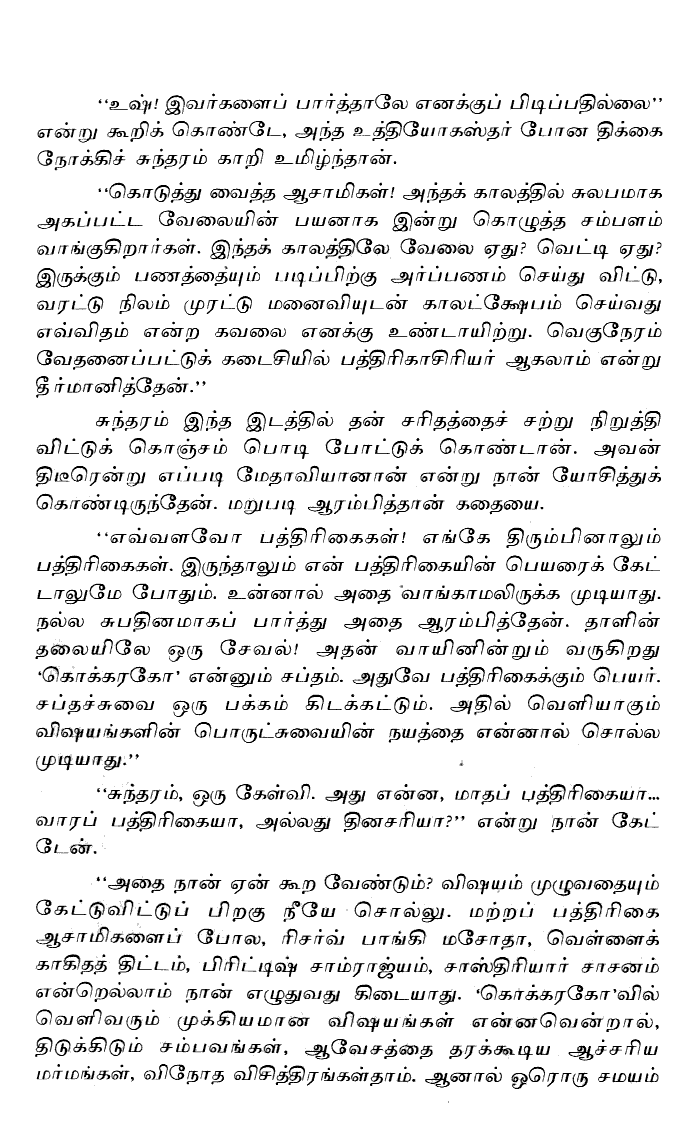 ‘‘உஷ்! இவர்களைப் பார்த்தாலே எனக்குப் பிடிப்பதில்லை’’
என்று கூறிக் கொண்டே, அந்த உத்தியோகஸ்தர் போன திக்கை
நோக்கிச் சுந்தரம் காறி உமிழ்ந்தான்.
‘‘கொடுத்து வைத்த ஆசாமிகள்! அந்தக் காலத்தில் சுலபமாக
அகப்பட்ட வேலையின் பயனாக இன்று கொழுத்த சம்பளம்
வாங்குகிறார்கள். இந்தக் காலத்திலே வேலை ஏது? வெட்டி ஏது?
இருக்கும் பணத்தையும் படிப்பிற்கு அர்ப்பணம் செய்து விட்டு,
வரட்டு நிலம் முரட்டு மனைவியுடன் காலட்க்ஷேபம் செய்வது
எவ்விதம் என்ற கவலை எனக்கு உண்டாயிற்று. வெகுநேரம்
வேதனைப்பட்டுக் கடைசியில் பத்திரிகாசிரியர் ஆகலாம் என்று
தீர்மானித்தேன்.’’
சுந்தரம் இந்த இடத்தில் தன் சரிதத்தைச் சற்று நிறுத்தி
விட்டுக் கொஞ்சம் பொடி போட்டுக் கொண்டான். அவன்
திடீரென்று எப்படி மேதாவியானான் என்று நான் யோசித்துக்
கொண்டிருந்தேன். மறுபடி ஆரம்பித்தான் கதையை.
‘‘எவ்வளவோ பத்திரிகைகள்! எங்கே திரும்பினாலும்
பத்திரிகைகள். இருந்தாலும் என் பத்திரிகையின் பெயரைக் கேட்
டாலுமே போதும். உன்னால் அதை வாங்காமலிருக்க முடியாது.
நல்ல சுபதினமாகப் பார்த்து அதை ஆரம்பித்தேன். தாளின்
தலையிலே ஒரு சேவல்! அதன் வாயினின்றும் வருகிறது
‘கொக்கரகோ’ என்னும் சப்தம். அதுவே பத்திரிகைக்கும் பெயர்.
சப்தச்சுவை ஒரு பக்கம் கிடக்கட்டும். அதில் வெளியாகும்
விஷயங்களின் பொருட்சுவையின் நயத்தை என்னால் சொல்ல
முடியாது.’’
‘‘சுந்தரம், ஒரு கேள்வி. அது என்ன, மாதப் பத்திரிகையா...
வாரப் பத்திரிகையா, அல்லது தினசரியா?’’ என்று நான் கேட்
டேன்.
‘‘அதை நான் ஏன் கூற வேண்டும்? விஷயம் முழுவதையும்
கேட்டுவிட்டுப் பிறகு நீயே சொல்லு. மற்றப் பத்திரிகை
ஆசாமிகளைப் போல, ரிசர்வ் பாங்கி மசோதா, வெள்ளைக்
காகிதத் திட்டம், பிரிட்டிஷ் சாம்ராஜ்யம், சாஸ்திரியார் சாசனம்
என்றெல்லாம் நான் எழுதுவது கிடையாது. ‘கொக்கரகோ’வில்
வெளிவரும் முக்கியமான விஷயங்கள் என்னவென்றால்,
திடுக்கிடும் சம்பவங்கள், ஆவேசத்தை தரக்கூடிய ஆச்சரிய
மர்மங்கள், விநோத விசித்திரங்கள்தாம். ஆனால் ஒரொரு சமயம்